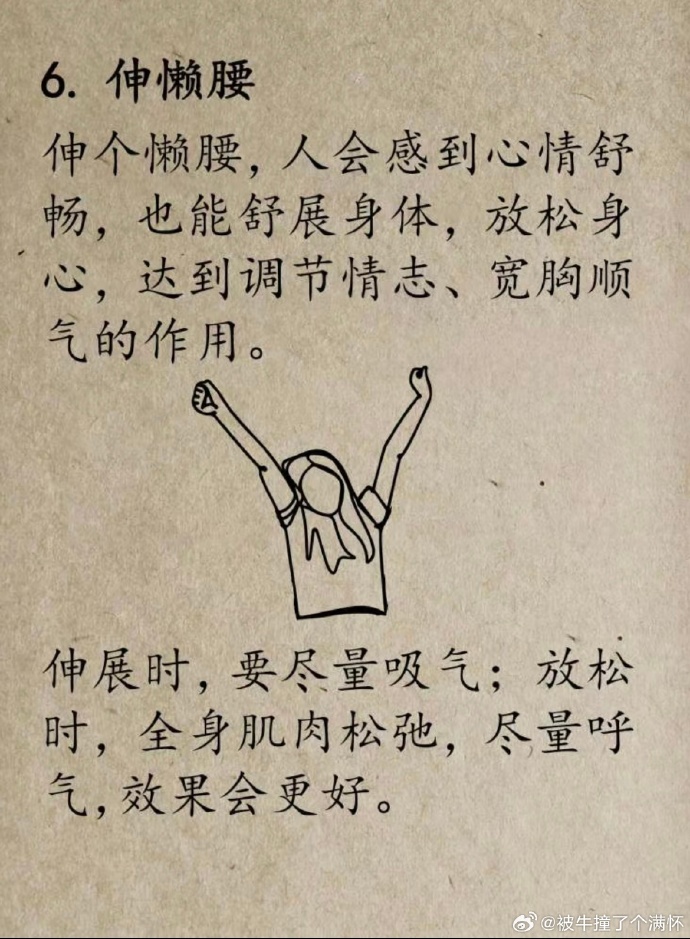 6. 伸懒腰
伸个懒腰，人会感到心情舒
畅，也能舒展身体，放松身
心，达到调节情志、宽胸顺
气的作用。
伸展时，要尽量吸气；放松
时，全身肌肉松弛，尽量呼
气，效果会更好。
@被牛撞了个满怀